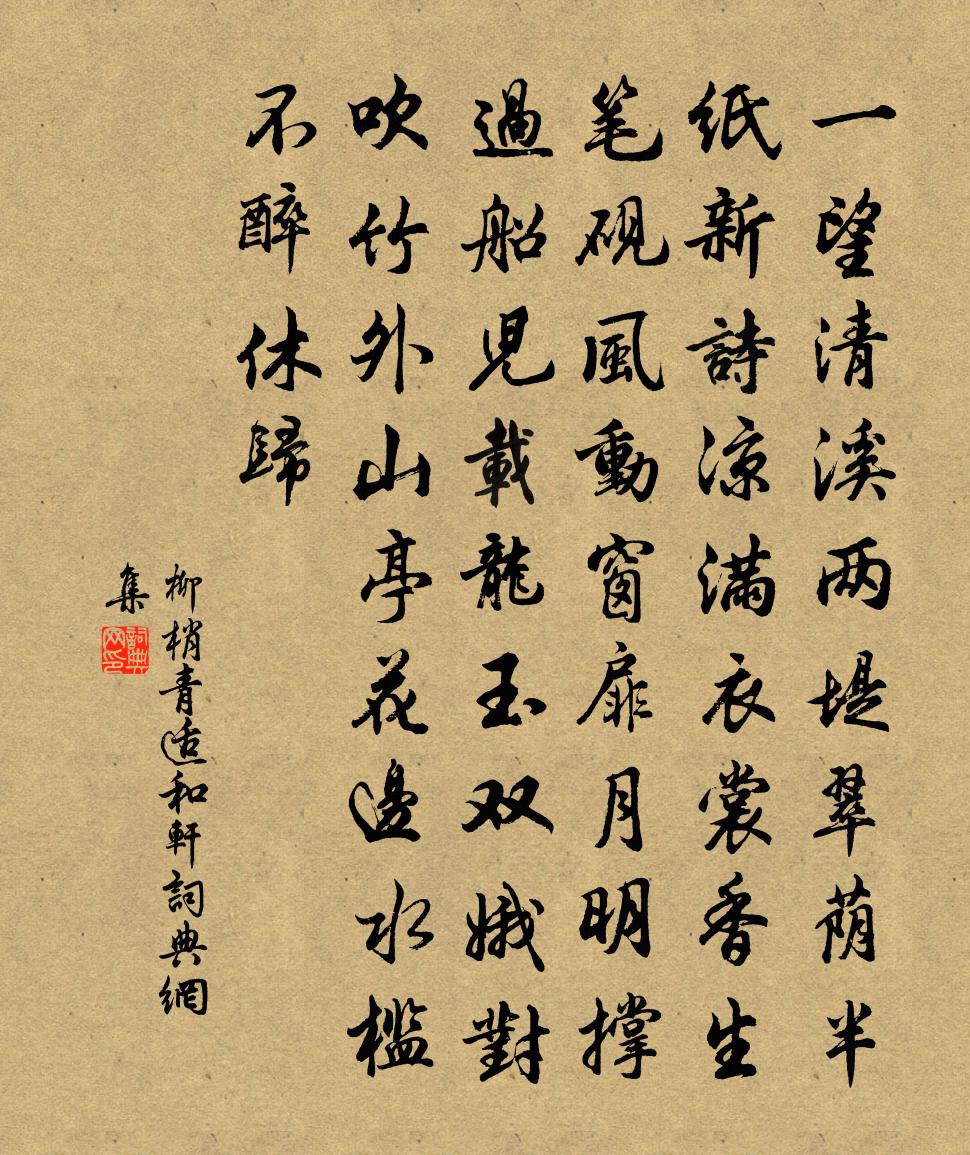 一望清溪两堤翠荫半
纸新詩凉满衣裳香生
笔砚風動窗扉月明撑
過船児載龍玉双娥對
吹竹外山亭花邊水檻
不醉休歸
柳梢青适和軒詞典網
集
詞典网印